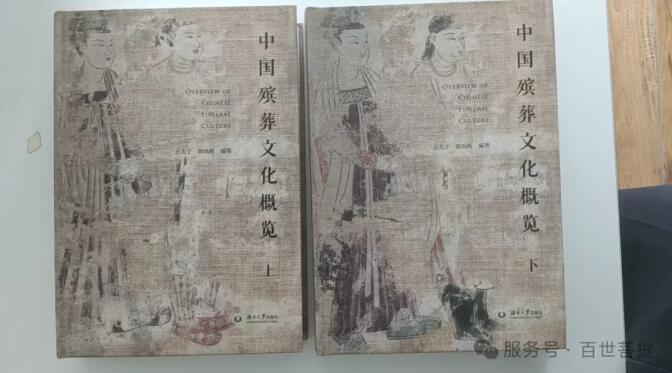 中国殡葬文化概览
上
OVERVIEW OF
CHINESE
FUNERAL
CULTURE
编著
湖南大学出版社
中国殡葬文化概览
下
OVERVIEW OF
CHINESE
FUNERAL
CULTURE
编著
湖南大学出版社
服务号·百世菩提